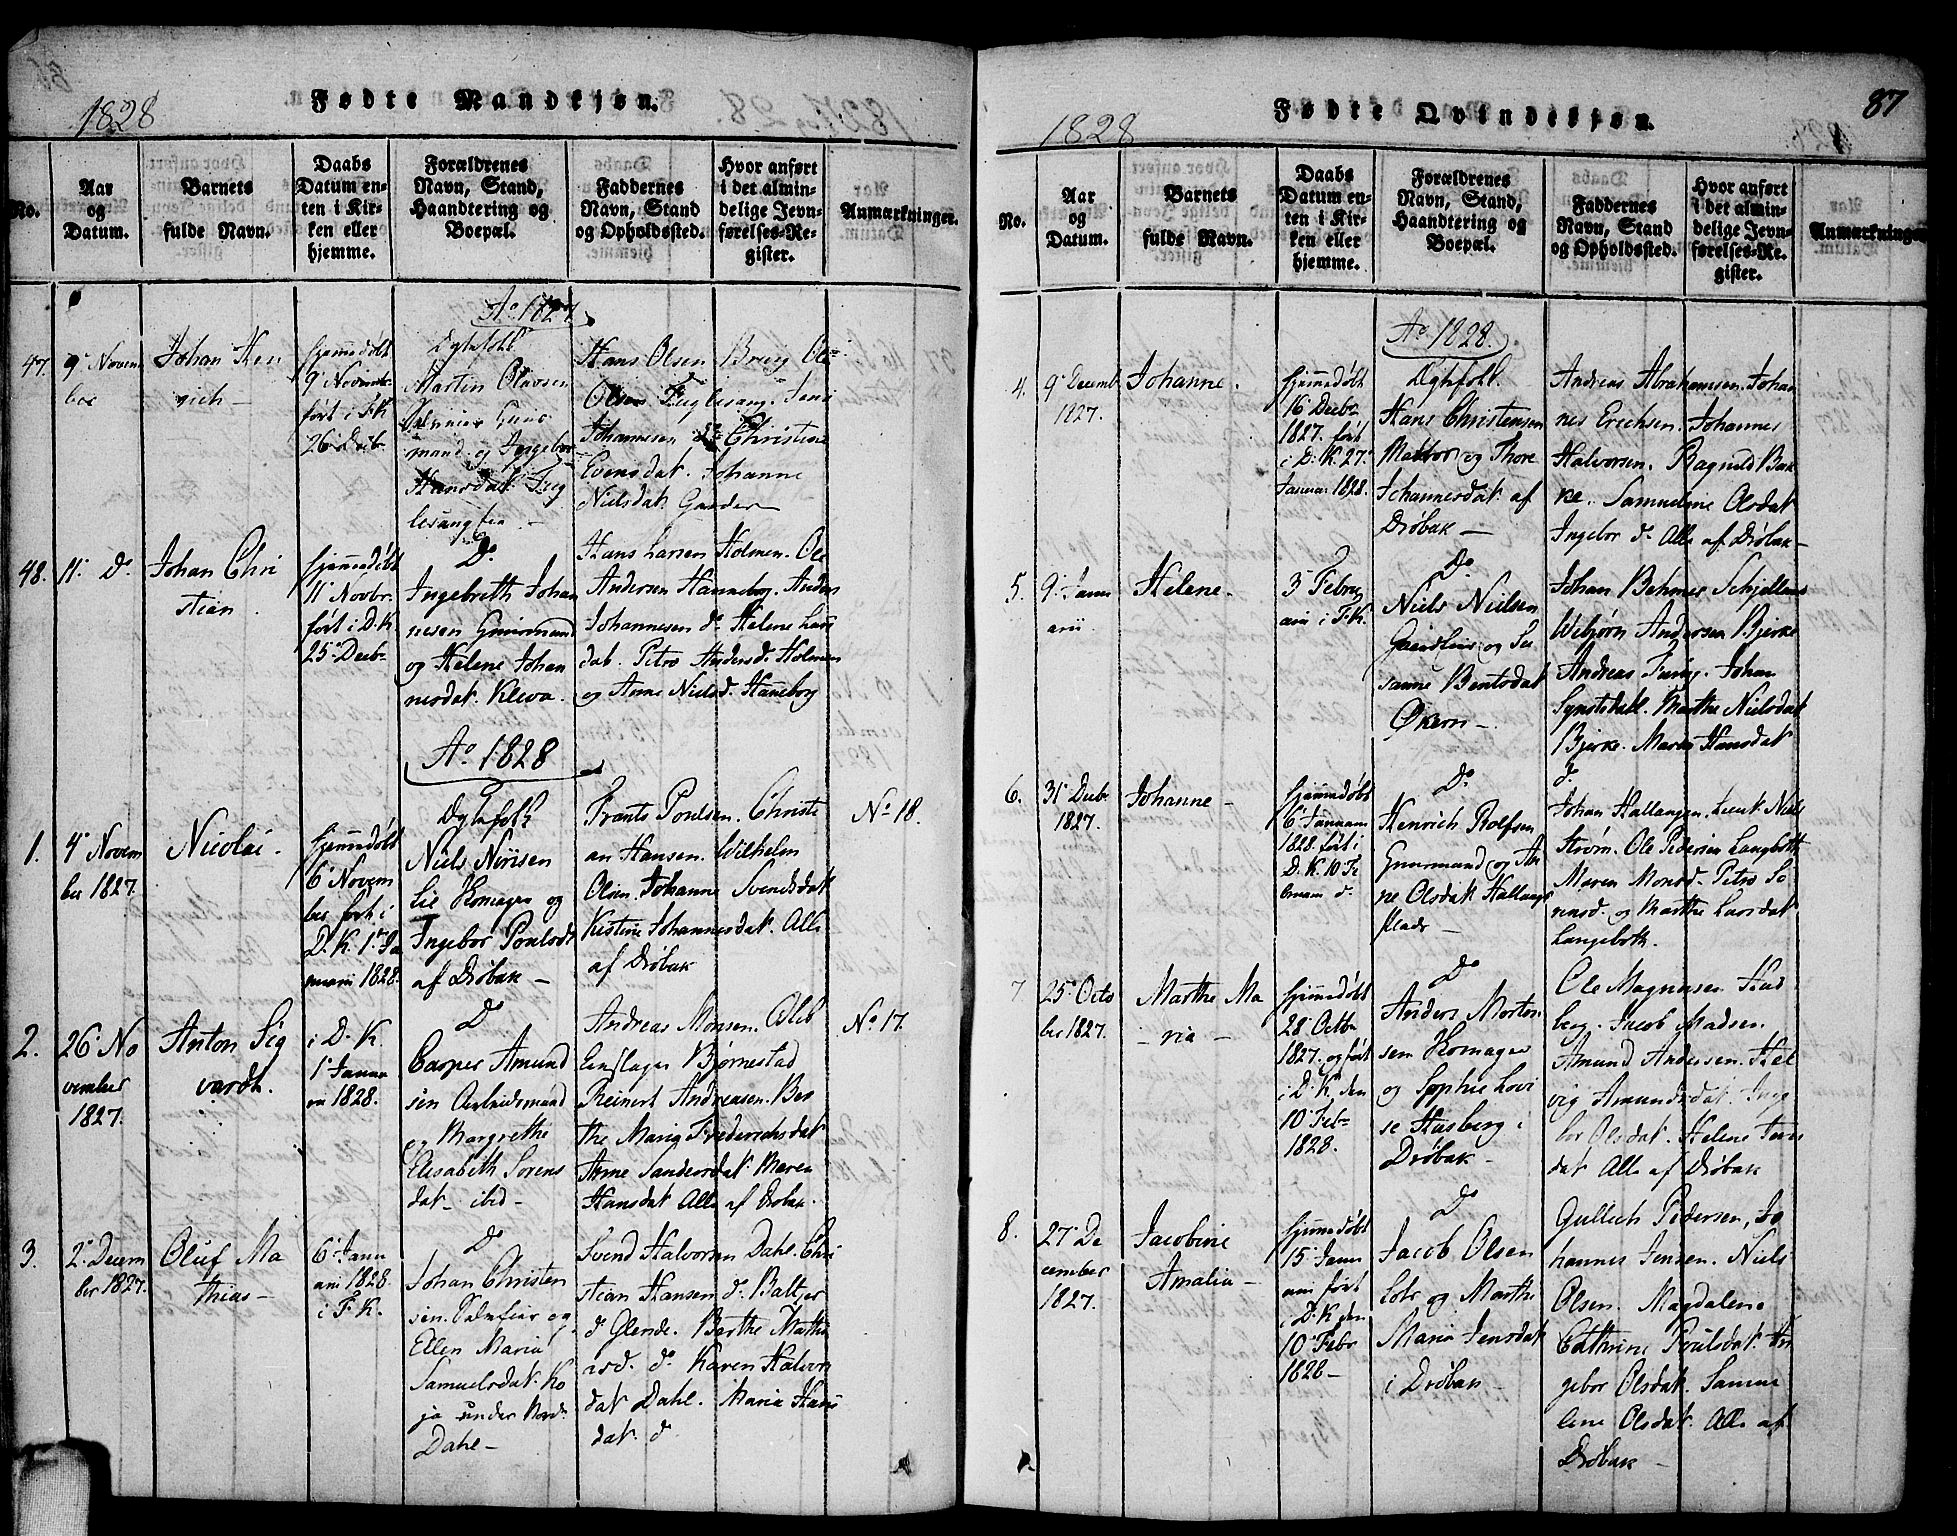 1828
Fødte Mandkjøn.
No.
Aar
og
Datum.
Barnets
fulde Navn.
Daabs
Datum en-
ten i Kir-
ken eller
hjemme.
Forældrenes
Navn, Stand,
Haandtering og
Boepæl.
Faddernes
Navn, Stand
og Opholdssted.
Hvor anført
i det almin-
delige Jevn-
førelses-Re-
gister.
Anmærkninger.
Ao 1827
47.
9 Novem
ber
Johan Hen
rich
hjemmedøbt
9 Novembr.
ført i F. K.
26 Decbr
Ægtefolk
Martin Olavsen
mand og Ingebor
Hansdat. Fug
lesang
Hans Olsen Brevig Ole
Olsen Fuglesang. Jens
Johannesen do Christine
Evensdat. Johanne
Nielsdat Garder
48.
11. Do
Johan Chri
stian.
hjemmedøbt
11 Novbr.
ført i D. K.
25 Decbr
Do
Ingebreth Johan
nesen Gruurmand
og Helene Johan
nesdat. Kleva.
Hans Larsen Holmen. Ole
Andersen Hanneborg. Anders
Johannesen do Helene Lars
dat. Petro Andersd. Holmen
og Anne Nielsd. Haneborg
Ao 1828
1.
4 Novem
ber 1827.
Nicolai.
hjemmedøbt
6 Novem
ber ført i
D. K. 1 Ja
nuarii 1828.
Ægtefolk
Niels Nirisen
Lie Homager og
Ingebor Poulsdt
af Drøbak
Frants Poulsen. Christi
an Hansen. Wilhelm
Olsen. Johanne Svendsdat
Kistine Johannesdat. Alle
af Drøbak
No 18.
2.
26 No
vember
1827.
Anton Sig
vardt.
i D. K.
1 Janua
rii 1828.
Do
Casper Amund
sen Arbeidsmand
og Margrethe
Elisabeth Sorens
dat ibid
Andreas Monsen. Ole
Einslager Bjørnestad
Reinert Andreasen. Ber
the Maria Frederichsdat
Anne Sandersdat. Maren
Hansdat Alle af Drøbak.
No 17.
3.
2 Decem
ber 1827.
Oluf Ma
thias
6 Janu
arii 1828.
i F. K.
Do
Johan Christen
sen. og
Ellen Maria
Samuelsdat. Ko
ja under Nord
Dahl
Svend Halvorsen Dahl. Chri
stian Hansen do Baltzer
do Glende. Berthe Mathi
asd. do Karen Halvors
dat Dahl. Maria Hans
dat. do
1828
Fødte Qvindekjøn.
87
No.
Aar
og
Datum.
Barnets
fulde Navn.
Daabs
Datum en-
ten i Kir-
ken eller
hjemme.
Forældrenes
Navn, Stand,
Haandtering og
Boepæl.
Faddernes
Navn, Stand
og Opholdssted.
Hvor anført
i det almin-
delige Jevn-
førelses-Re-
gister.
Anmærkninger
Ao 1828.
4.
9 Decemb
1827.
Johanne.
hjemmedøbt
16 Decbr
1827. ført
i D. K. 27
Januar 1828.
Ægtefolk.
Hans Christensen
Matros og Thore
Johannesdat af
Drøbak
Andreas Abrahamsen. Johan
nes Erichsen. Johannes
Halvorsen. Ragnild Bak
ke. Samueline Olsdat
Ingebor do Alle af Drøbak
5.
9 Janu
arii.
Helene.
3 Febru
arii i F. K.
Do
Niels Nielsen
og Su
sanne Berntsdat
Økern
Johan Behmer Schjelleus
Webjørn Andersen Bjerke
Andreas Furuj. Johan
Marthe Nielsdat
Bjerke. Maren Hansdat
do
6.
31 Decbr
1827.
Johanne
hjemmedøbt
6 Januarii
1828 ført i
D. K. 10 Fe
bruarii do
Do
Henrich Rolfsen
Gruurmand og An
ne Olsdat Hallangs
plads
Johan Hallangen. Lieut. Niels
Strøm. Ole Pedersen Langboth
Maren Monsd. Petro So
rensd. og Marthe Larsdat
Langeboth.
7
25 Octo
ber 1827.
Marthe Ma
ria
hjemmedøbt
28 Octbr
1827. og ført
i D. K. den
10 Febr
1828.
Do
Anders Morten
sen Homager
og Sophie Lovi
se Husberg i
Drøbak
Ole Magnusen Hus
berg. Jacob Madsen.
Amund Andersen. Hel
vig Amundsdat. Inge
bor Olsdat. Helene Jens
dat Alle af Drøbak
8.
27 De
cember
1827.
Jacobine
Amalia
hjemmedøbt
15 Janu
arii ført
i D. K. den
10 Febr
1828
Do
Jacob Olsen
Lots og Marthe
Maria Jensdat
i Drøbak
Gullich Pedersen, Jo
hannes Jensen. Niels
Olsen. Magdalene
Cathrine Poulsdat. In
gebor Olsdat. Samue
line Olsdat. Alle af
Drøbak